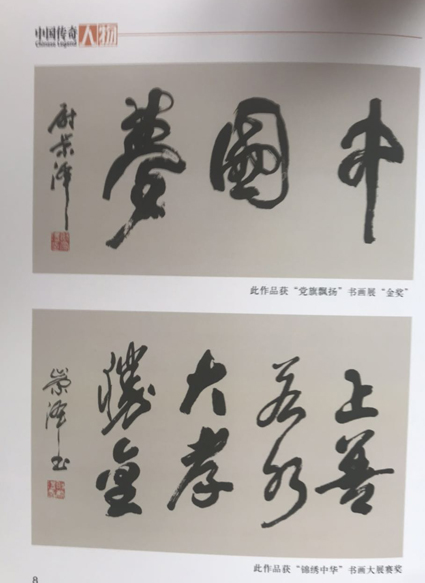 中国传奇 人物
Chinese Legend
中國夢
尉崇泽
此作品获“党旗飘扬”书画展“金奖”
上善
若水
大孝
勝金
崇泽书
此作品获“锦绣中华”书画大展赛奖
8